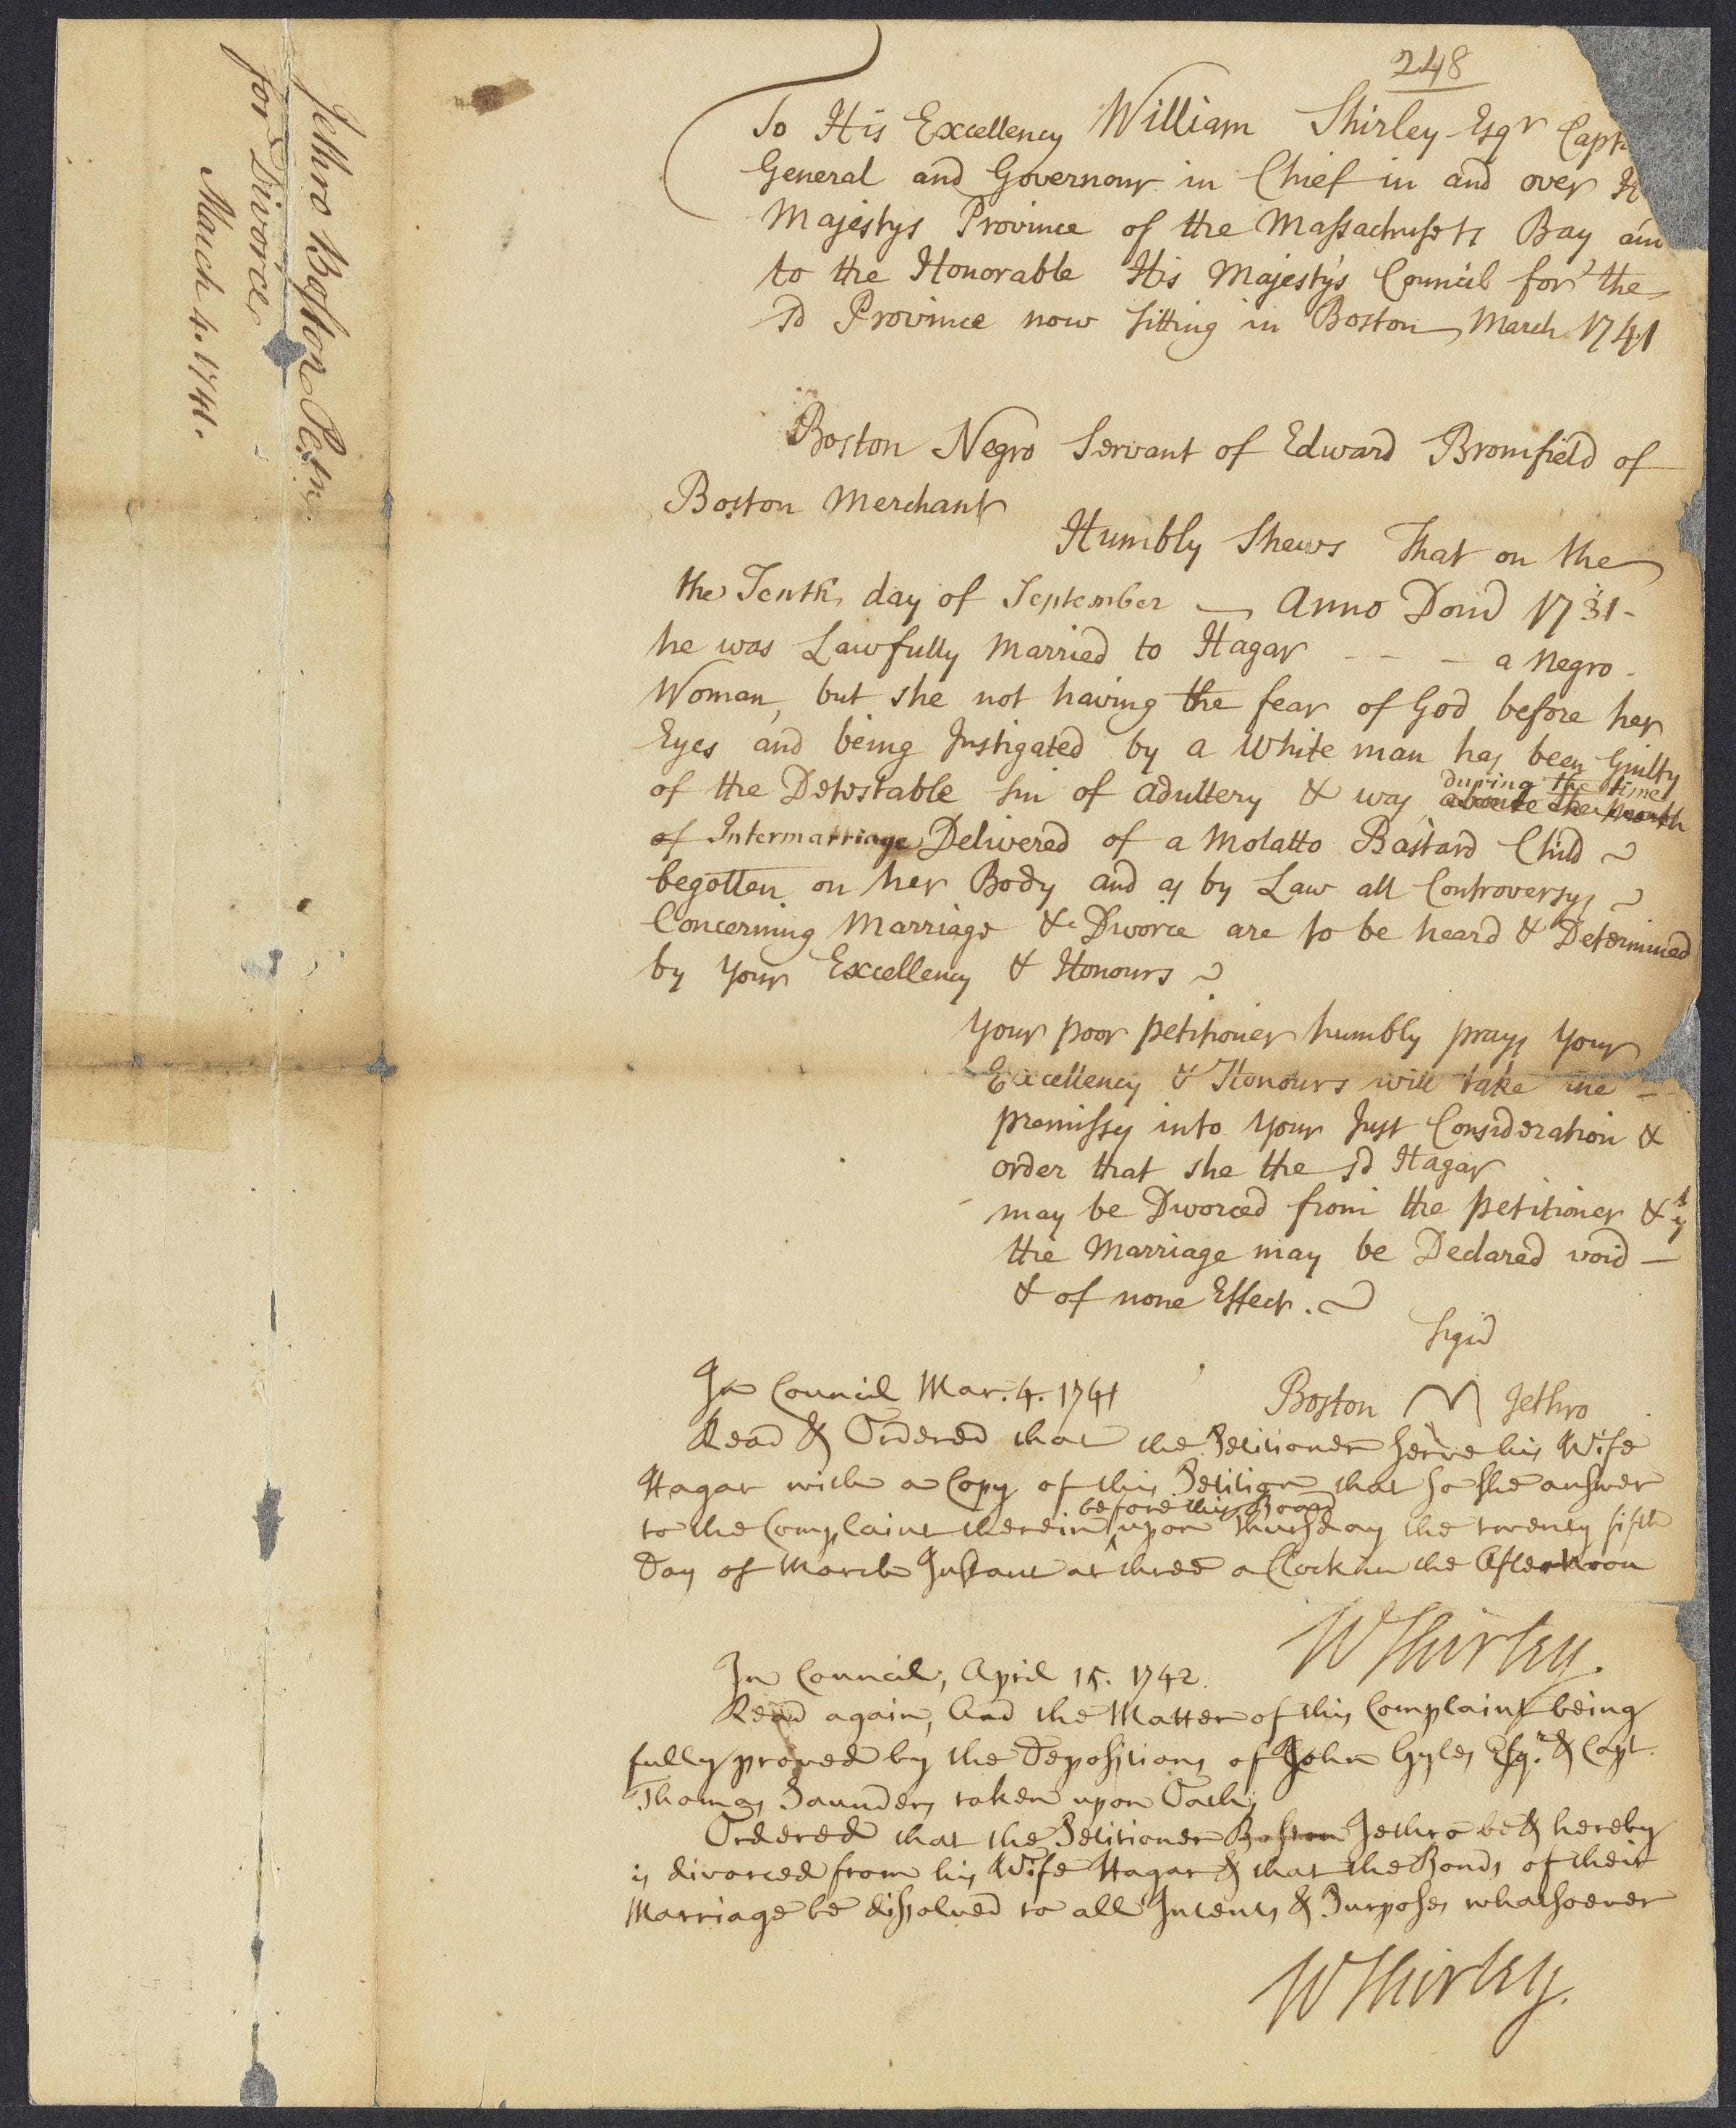 248
To His Excellency William Shirley Esqr Capt
General and Governour in Chief in and over
Majestys Province of the Massachusets Bay an
to the Honorable His Majesty's Council for the
sd Province now Sitting in Boston March 1741
Boston Negro Servant of Edward Bromfield of
Boston Merchant
Humbly Shews That on the
the Tenth day of September Anno Domi 1731
he was Lawfully Married to Hagar - - - a Negro
Woman, but she not having the fear of God before her
Eyes and being Instigated by a White man has been Guilty
during the time
of the Detestable Sin of adultery & was
of Intermarriage Delivered of a Molatto Bastard Child
begotten on her Body and as by Law all Controversys
Concerning Marriage & Divorce are to be heard & Determined
by Your Excellency & Honours
Your poor petitioner humbly prays Your
Excellency & Honours will take the
premisses into Your Just Consideration &
order that she the sd Hagar
may be Divorced from the petitioner & yt
the Marriage may be Declared void
& of none Effect.
Sign'd
Boston Jethro
In Council Mar. 4. 1741
Read & Ordered that the Petitioner serve his Wife
Hagar with a Copy of this Petition that so she answer
before this Board
to the Complaint therein ^ upon thursday the twenty fifth
Day of March Instant at three a Clock in the Afternoon
W Shirley.
In Council, April 15. 1742.
Read again, And the Matter of this Complaint being
fully proved by the Depositions of John Gyles Esqr. & Capt.
Thomas Saunders taken upon Oath;
Ordered that the Petitioner Boston Jethro be & hereby
is divorced from his Wife Hagar & that the Bonds of their
Marriage be dissolved to all Intents & Purposes whatsoever
W Shirley.
Jethro Boston Petn
for Divorce
March 4. 1741.